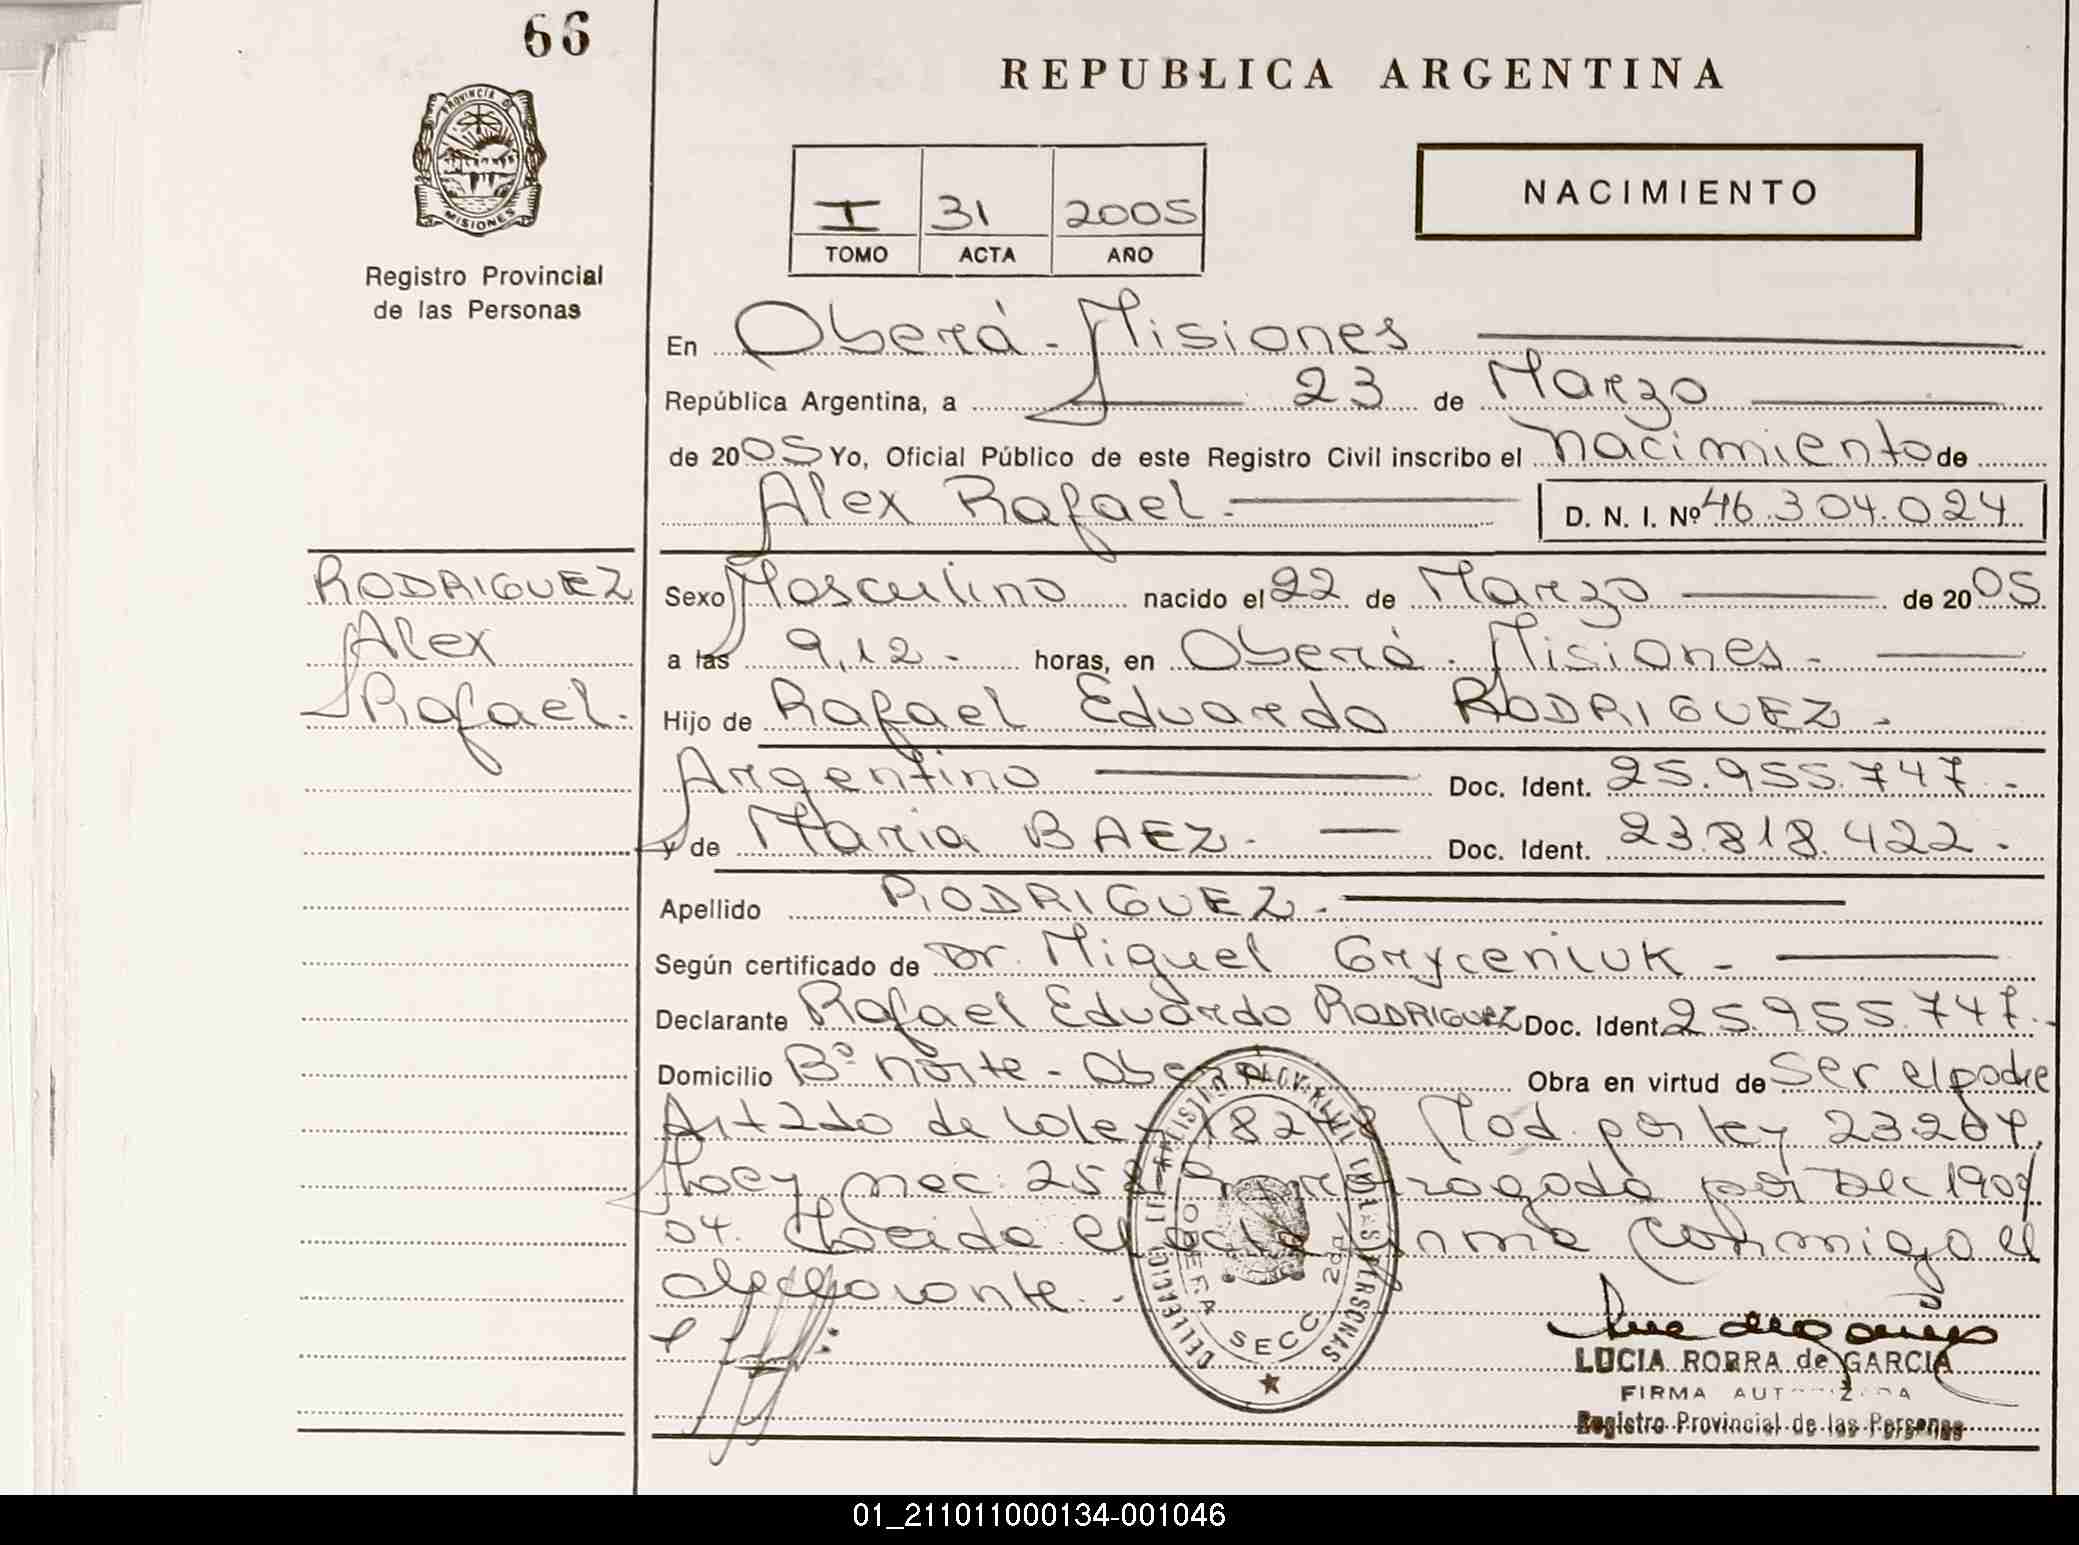 66
PROVINCIA D
MISIONES
Registro Provincial
de las Personas
REPUBLICA ARGENTINA
I 31 2005
TOMO ACTA AÑO
NACIMIENTO
En Oberá - Misiones
República Argentina, a 23 de Marzo
de 2005 Yo, Oficial Público de este Registro Civil inscribo el nacimiento de
Alex Rafael.
D. N. I. Nº 46.304.024
RODRIGUEZ
Alex
Rafael.
Sexo Masculino nacido el 22 de Marzo de 2005
a las 9,12 - horas, en Oberá - Misiones -
Hijo de Rafael Eduardo RODRIGUEZ -
Argentino Doc. Ident. 25.955.747.-
y de Maria BAEZ - Doc. Ident. 23.818.422.-
Apellido RODRIGUEZ -
Según certificado de Dr. Miguel Gryceniuk -
Declarante Rafael Eduardo RODRIGUEZ Doc. Ident. 25.955.747.-
Domicilio Bº norte - Obera Obra en virtud de ser el padre
Art 2do de la ley 18248 Mod. por ley 23.264,
por Dec 1909/
04. Leida el acta firma conmigo el
declarante.-
OBERA SECC. 2da
LUCIA ROBRA de GARCIA
FIRMA AUTORIZADA
Registro Provincial de las Personas
01_211011000134-001046